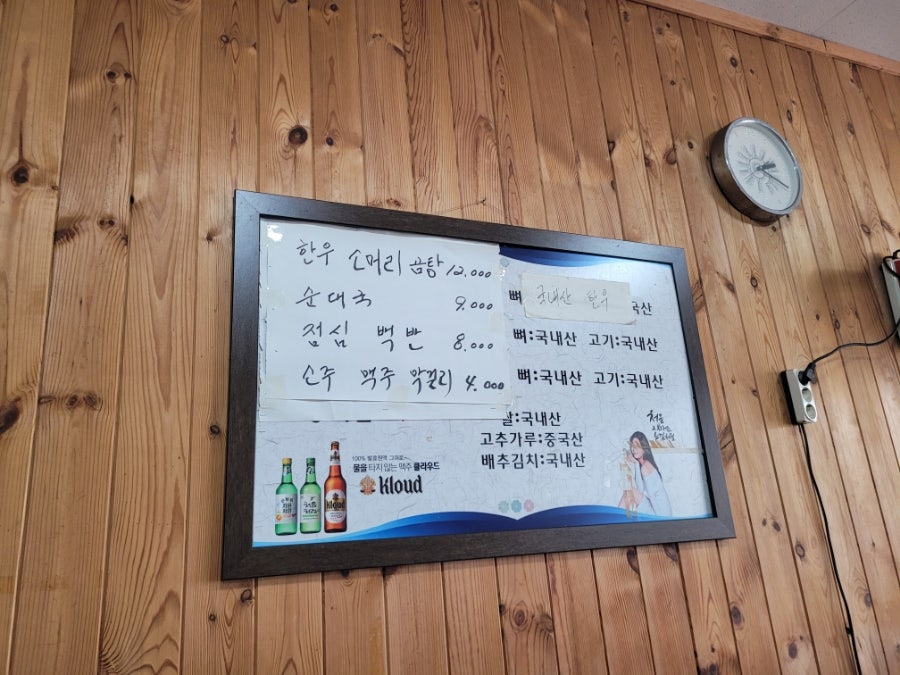 한우 소머리 곰탕 12,000
순대국 9.000
점심 백반 8.000
소주 맥주 막걸리 4.000
뼈 국내산 한우 국산
뼈:국내산 고기:국내산
뼈:국내산 고기:국내산
쌀:국내산
고추가루:중국산
배추김치:국내산
처음
100% 발효원액 그대로~
물을 타지 않는 맥주 클라우드
Kloud
kloud